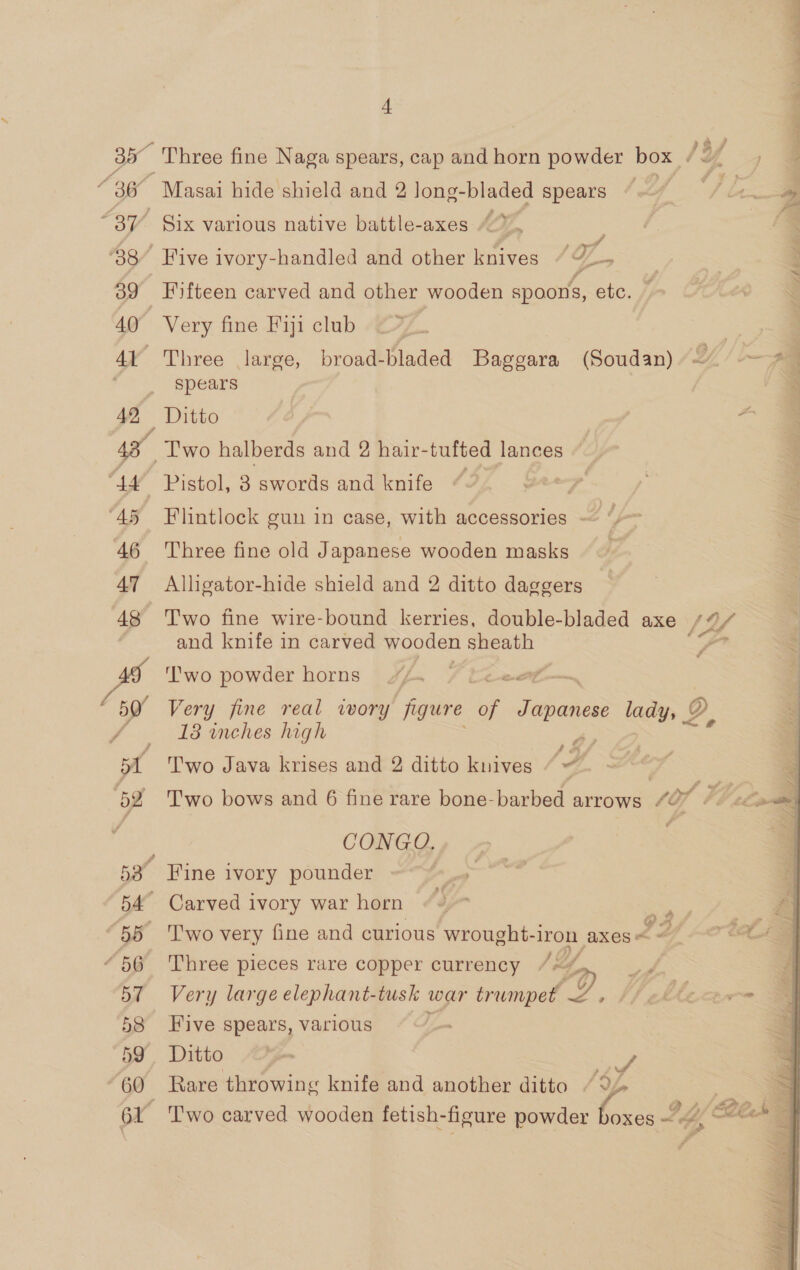 4
35 Three fine Naga spears, cap and horn powder box
36 Masai hide shield and 2 long-bladed spears
37 Six various native battle-axes
38 Five ivory-handled and other knives
39 Fifteen carved and other wooden spoons, etc.
40 Very fine Fiji club
41 Three large, broad-bladed Baggara (Soudan)
spears
42 Ditto
43 Two halberds and 2 hair-tufted lances
44 Pistol, 3 swords and knife
45 Flintlock gun in case, with accessories
46 Three fine old Japanese wooden masks
47 Alligator-hide shield and 2 ditto daggers
48 Two fine wire-bound kerries, double-bladed axe
and knife in carved wooden sheath
49 Two powder horns
50 Very fine real ivory figure of Japanese lady,
13 inches high
51 Two Java krises and 2 ditto knives
52 Two bows and 6 fine rare bone-barbed arrows
CONGO.
53 Fine ivory pounder
54 Carved ivory war horn
55 Two very fine and curious wrought-iron axes
56 Three pieces rare copper currency
57 Very large elephant-tusk war trumpet
58 Five spears, various
59 Ditto
60 Rare throwing knife and another ditto
61 Two carved wooden fetish-figure powder boxes